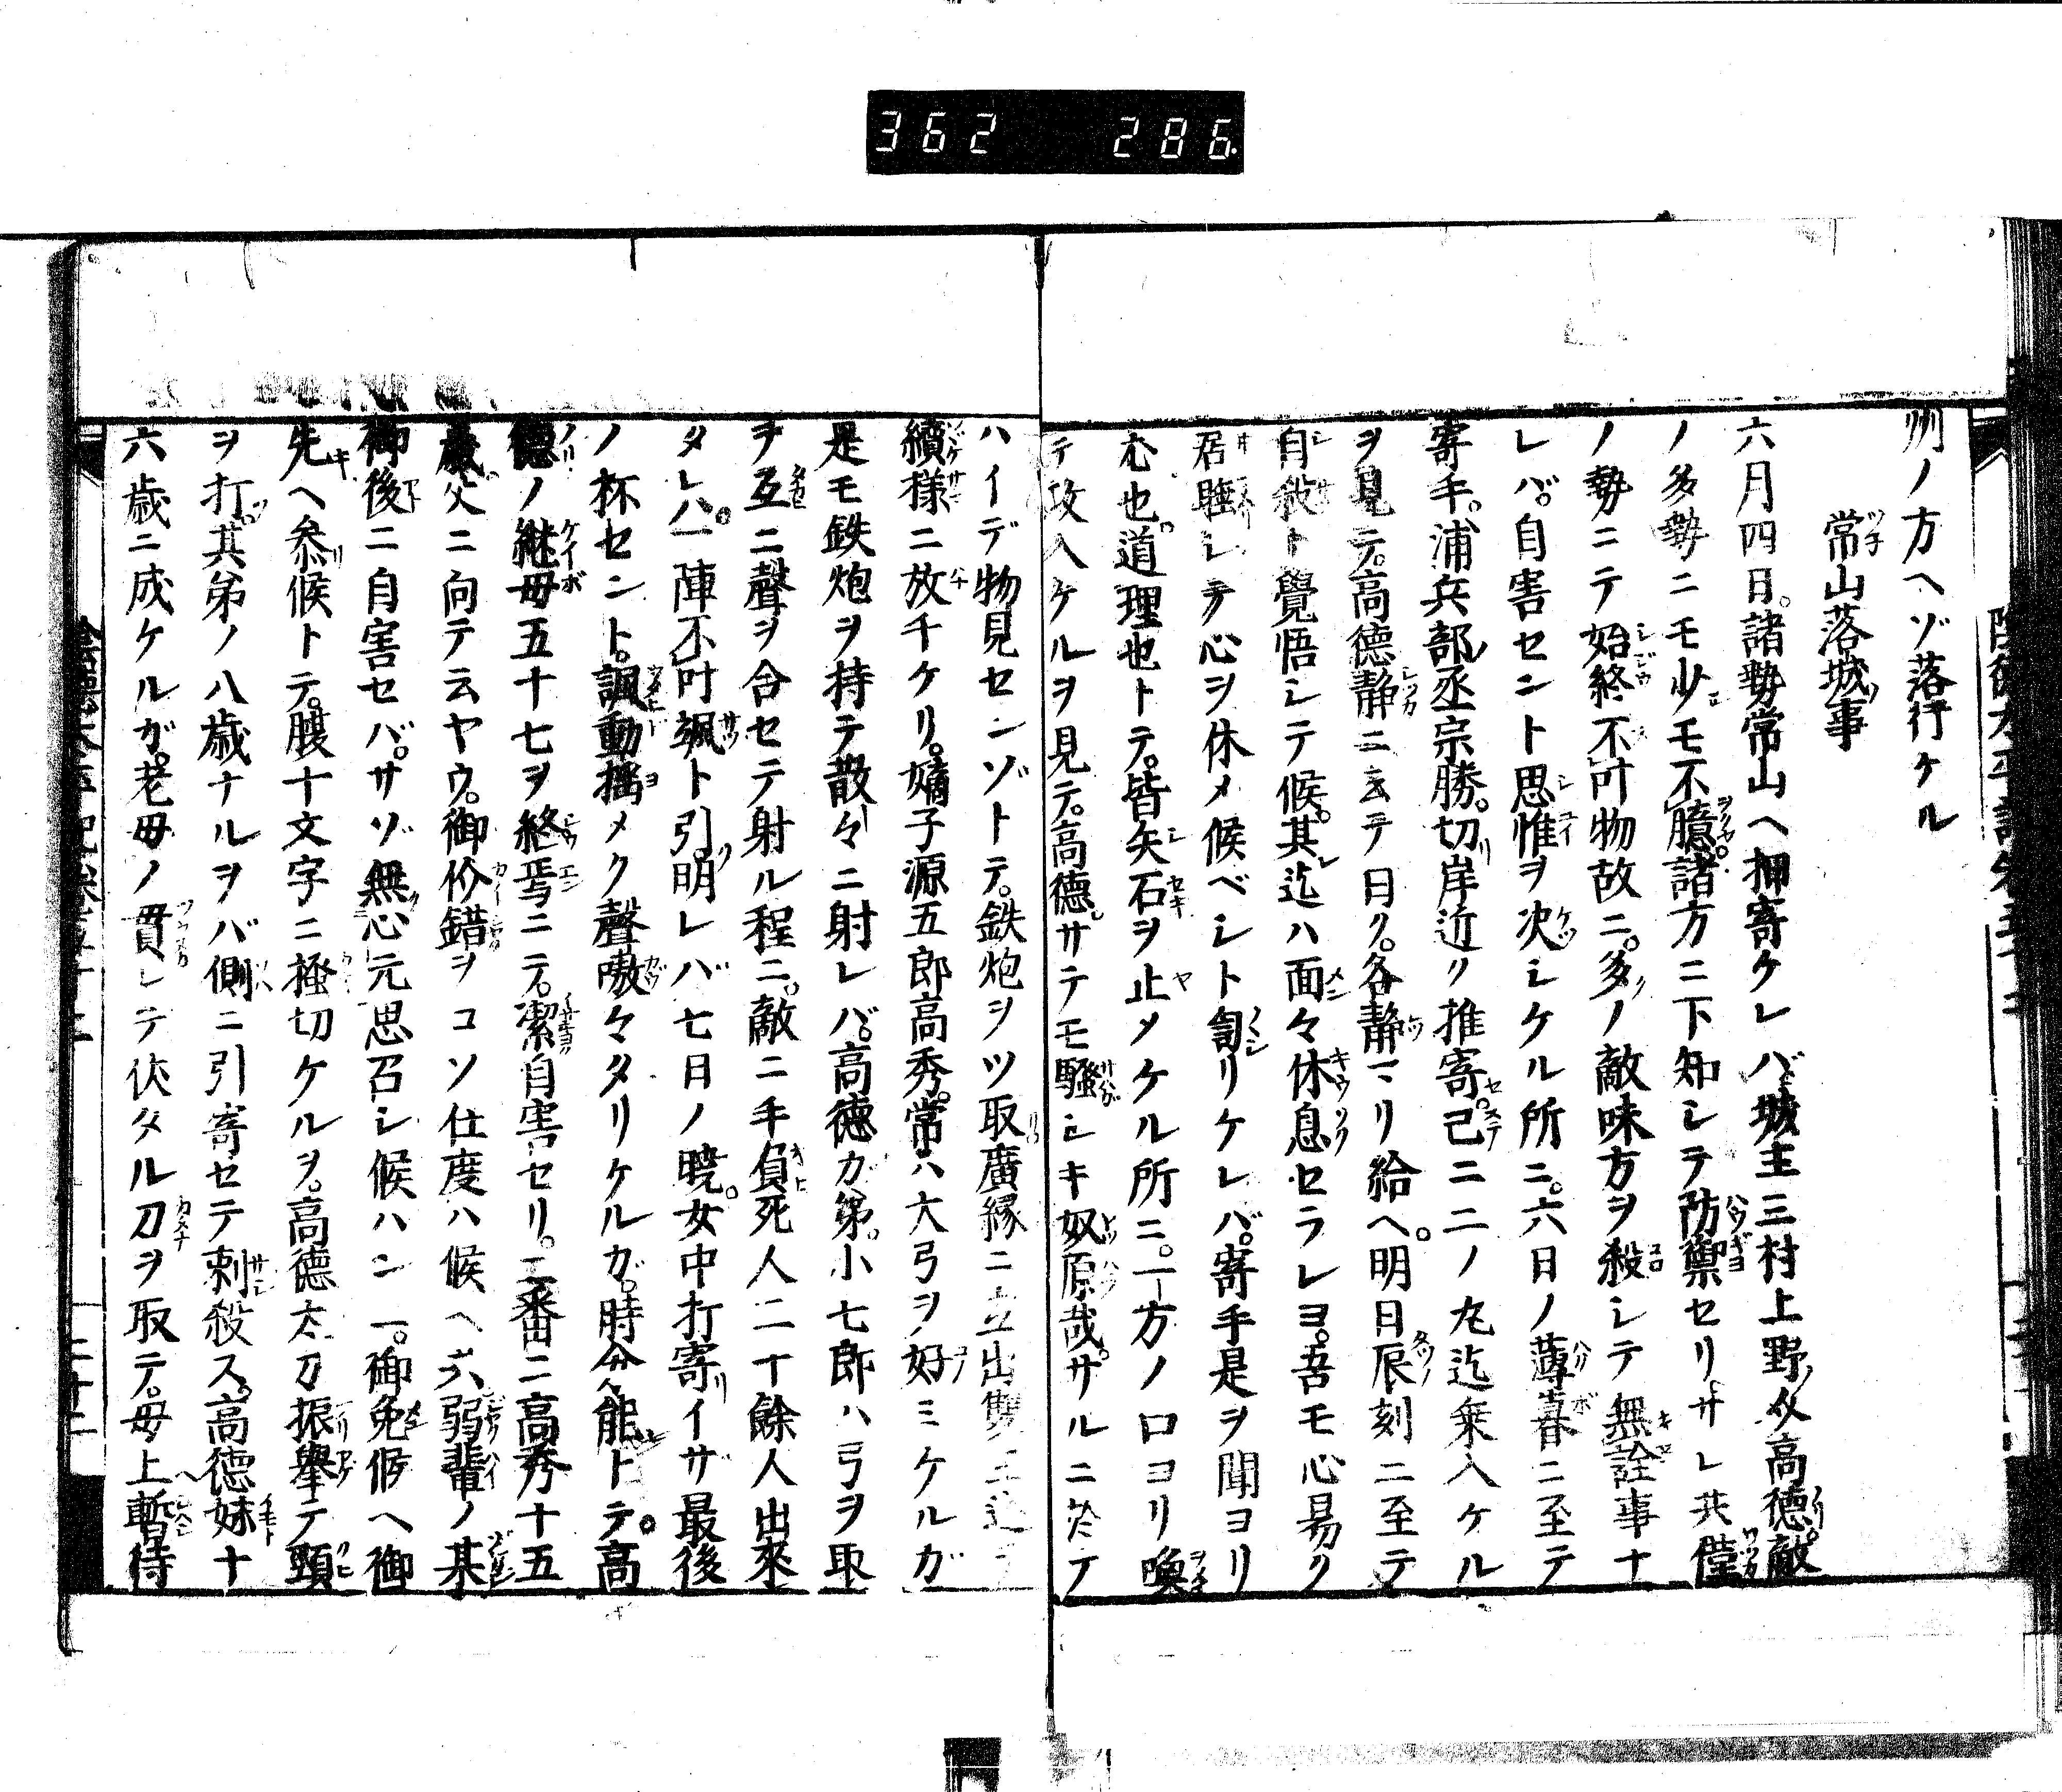 362 286
州ノ方ヘゾ落行ケル
常山落城ノ事
六月四日。諸勢常山ヘ押寄ケレバ城主三村上野介高徳。敵
ノ多勢ニモ少モ不臆。諸方ニ下知シテ防禦セリ。サレ共僅
ノ勢ニテ始終不叶物故ニ。多ノ敵味方ヲ殺シテ無詮事ナ
レバ。自害セント思惟ヲ決シケル所ニ。六日ノ薄暮ニ至テ
寄手。浦兵部丞宗勝。切岸近ク推寄。已ニ二ノ丸迄乗入ケル
ヲ見テ。高徳静ニ云テ曰ク。各静マリ給ヘ。明日辰刻ニ至テ
自殺ト覺悟シテ候。其迄ハ面々休息セラレヨ。吾モ心易ク
居睡シテ心ヲ休メ候ベシト匐リケレバ。寄手是ヲ聞ヨリ
尤也。道理也トテ。皆矢石ヲ止メケル所ニ。一方ノ口ヨリ喚
テ攻入ケルヲ見テ。高徳。サテモ騒シキ奴原哉。サルニ於テ
ハイデ物見センゾトテ。鉄炮ヲツ取廣縁ニ立出
續様ニ放チケリ。嫡子源五郎高秀。常ハ大弓ヲ好ミケルガ
是モ鉄炮ヲ持テ散々ニ射レバ。高徳カ弟。小七郎ハ弓ヲ取
ヲ互ニ聲ヲ合セテ射ル程ニ。敵ニ手負死人二十餘人出來
タレハ。一陣不叶颯ト引。明レバ七日ノ暁。女中打寄イサ最後
ノ杯セント。諷動揺メク聲嗷々タリケルガ。時分能トテ。高
徳ノ継母五十七ヲ終焉ニテ。潔自害セリ。二番ニ高秀十五
歳。父ニ向テ云ヤウ。御介錯ヲコソ仕度ハ候ヘ共。弱輩ノ某
御後ニ自害セバ。サゾ無心元思召シ候ハン。御免候ヘ御
先ヘ参候トテ。腹十文字ニ掻切ケルヲ。高徳太刀振舉テ頸
ヲ打。其弟ノ八歳ナルヲバ側ニ引寄セテ刺殺ス。高徳妹十
六歳ニ成ケルガ。老母ノ貫レテ伏タル刀ヲ取テ。母上暫待